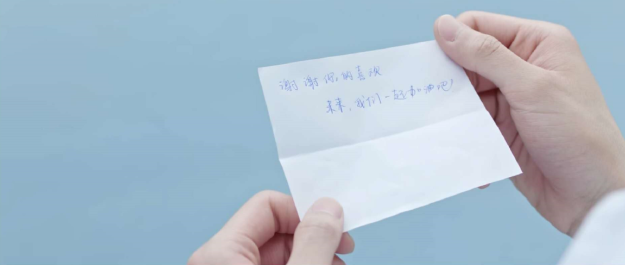 谢谢你的喜欢
未来,我们一起加油吧!